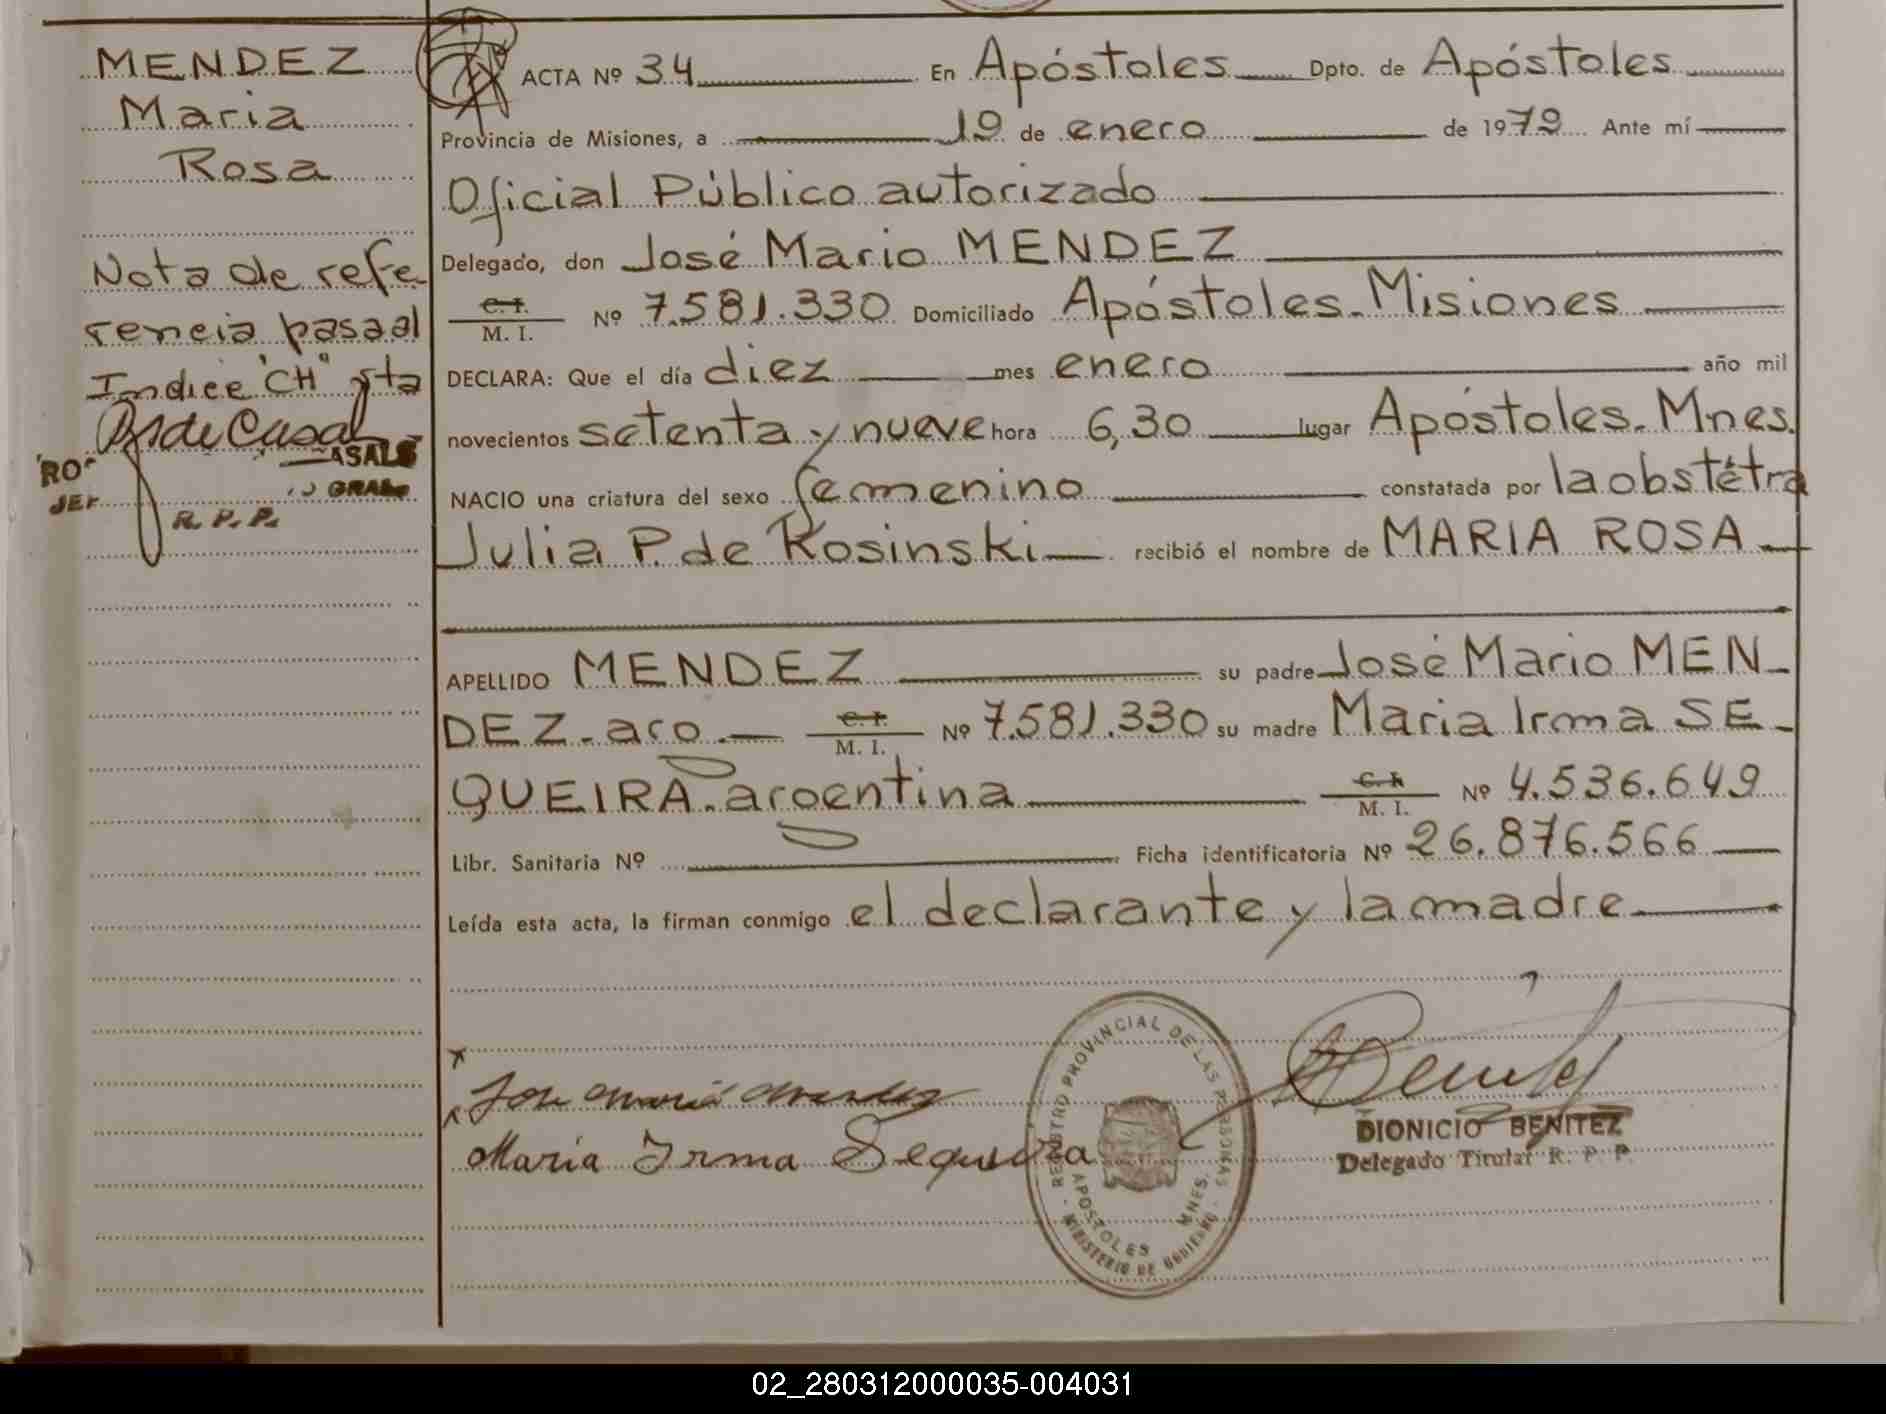 MENDEZ
Maria
Rosa
Nota de refe
rencia pasa al
Indice "CH" sta
R. P. P.
ACTA Nº 34 En Apóstoles Dpto. de Apóstoles
Provincia de Misiones, a 19 de enero de 1979 Ante mí
Oficial Público autorizado
Delegado, don José Mario MENDEZ
C. I.
M. I. Nº 7.581.330 Domiciliado Apóstoles. Misiones
DECLARA: Que el día diez mes enero año mil
novecientos setenta y nueve hora 6,30 lugar Apóstoles. Mnes.
NACIO una criatura del sexo femenino constatada por la obstétra
Julia P. de Kosinski recibió el nombre de MARIA ROSA
APELLIDO MENDEZ su padre José Mario MEN
DEZ. arg. C. I. M. I. Nº 7.581.330 su madre Maria Irma SE
QUEIRA. argentina C. I. M. I. Nº 4.536.649
Libr. Sanitaria Nº Ficha identificatoria Nº 26.876.566
Leída esta acta, la firman conmigo el declarante y la madre
Jose Maria Mendez
Maria Irma Sequeira
REGISTRO PROVINCIAL DE LAS PERSONAS
APOSTOLES MNES.
MINISTERIO DE GOBIERNO
DIONICIO BENITEZ
Delegado Titular R. P. P.
02_280312000035-004031